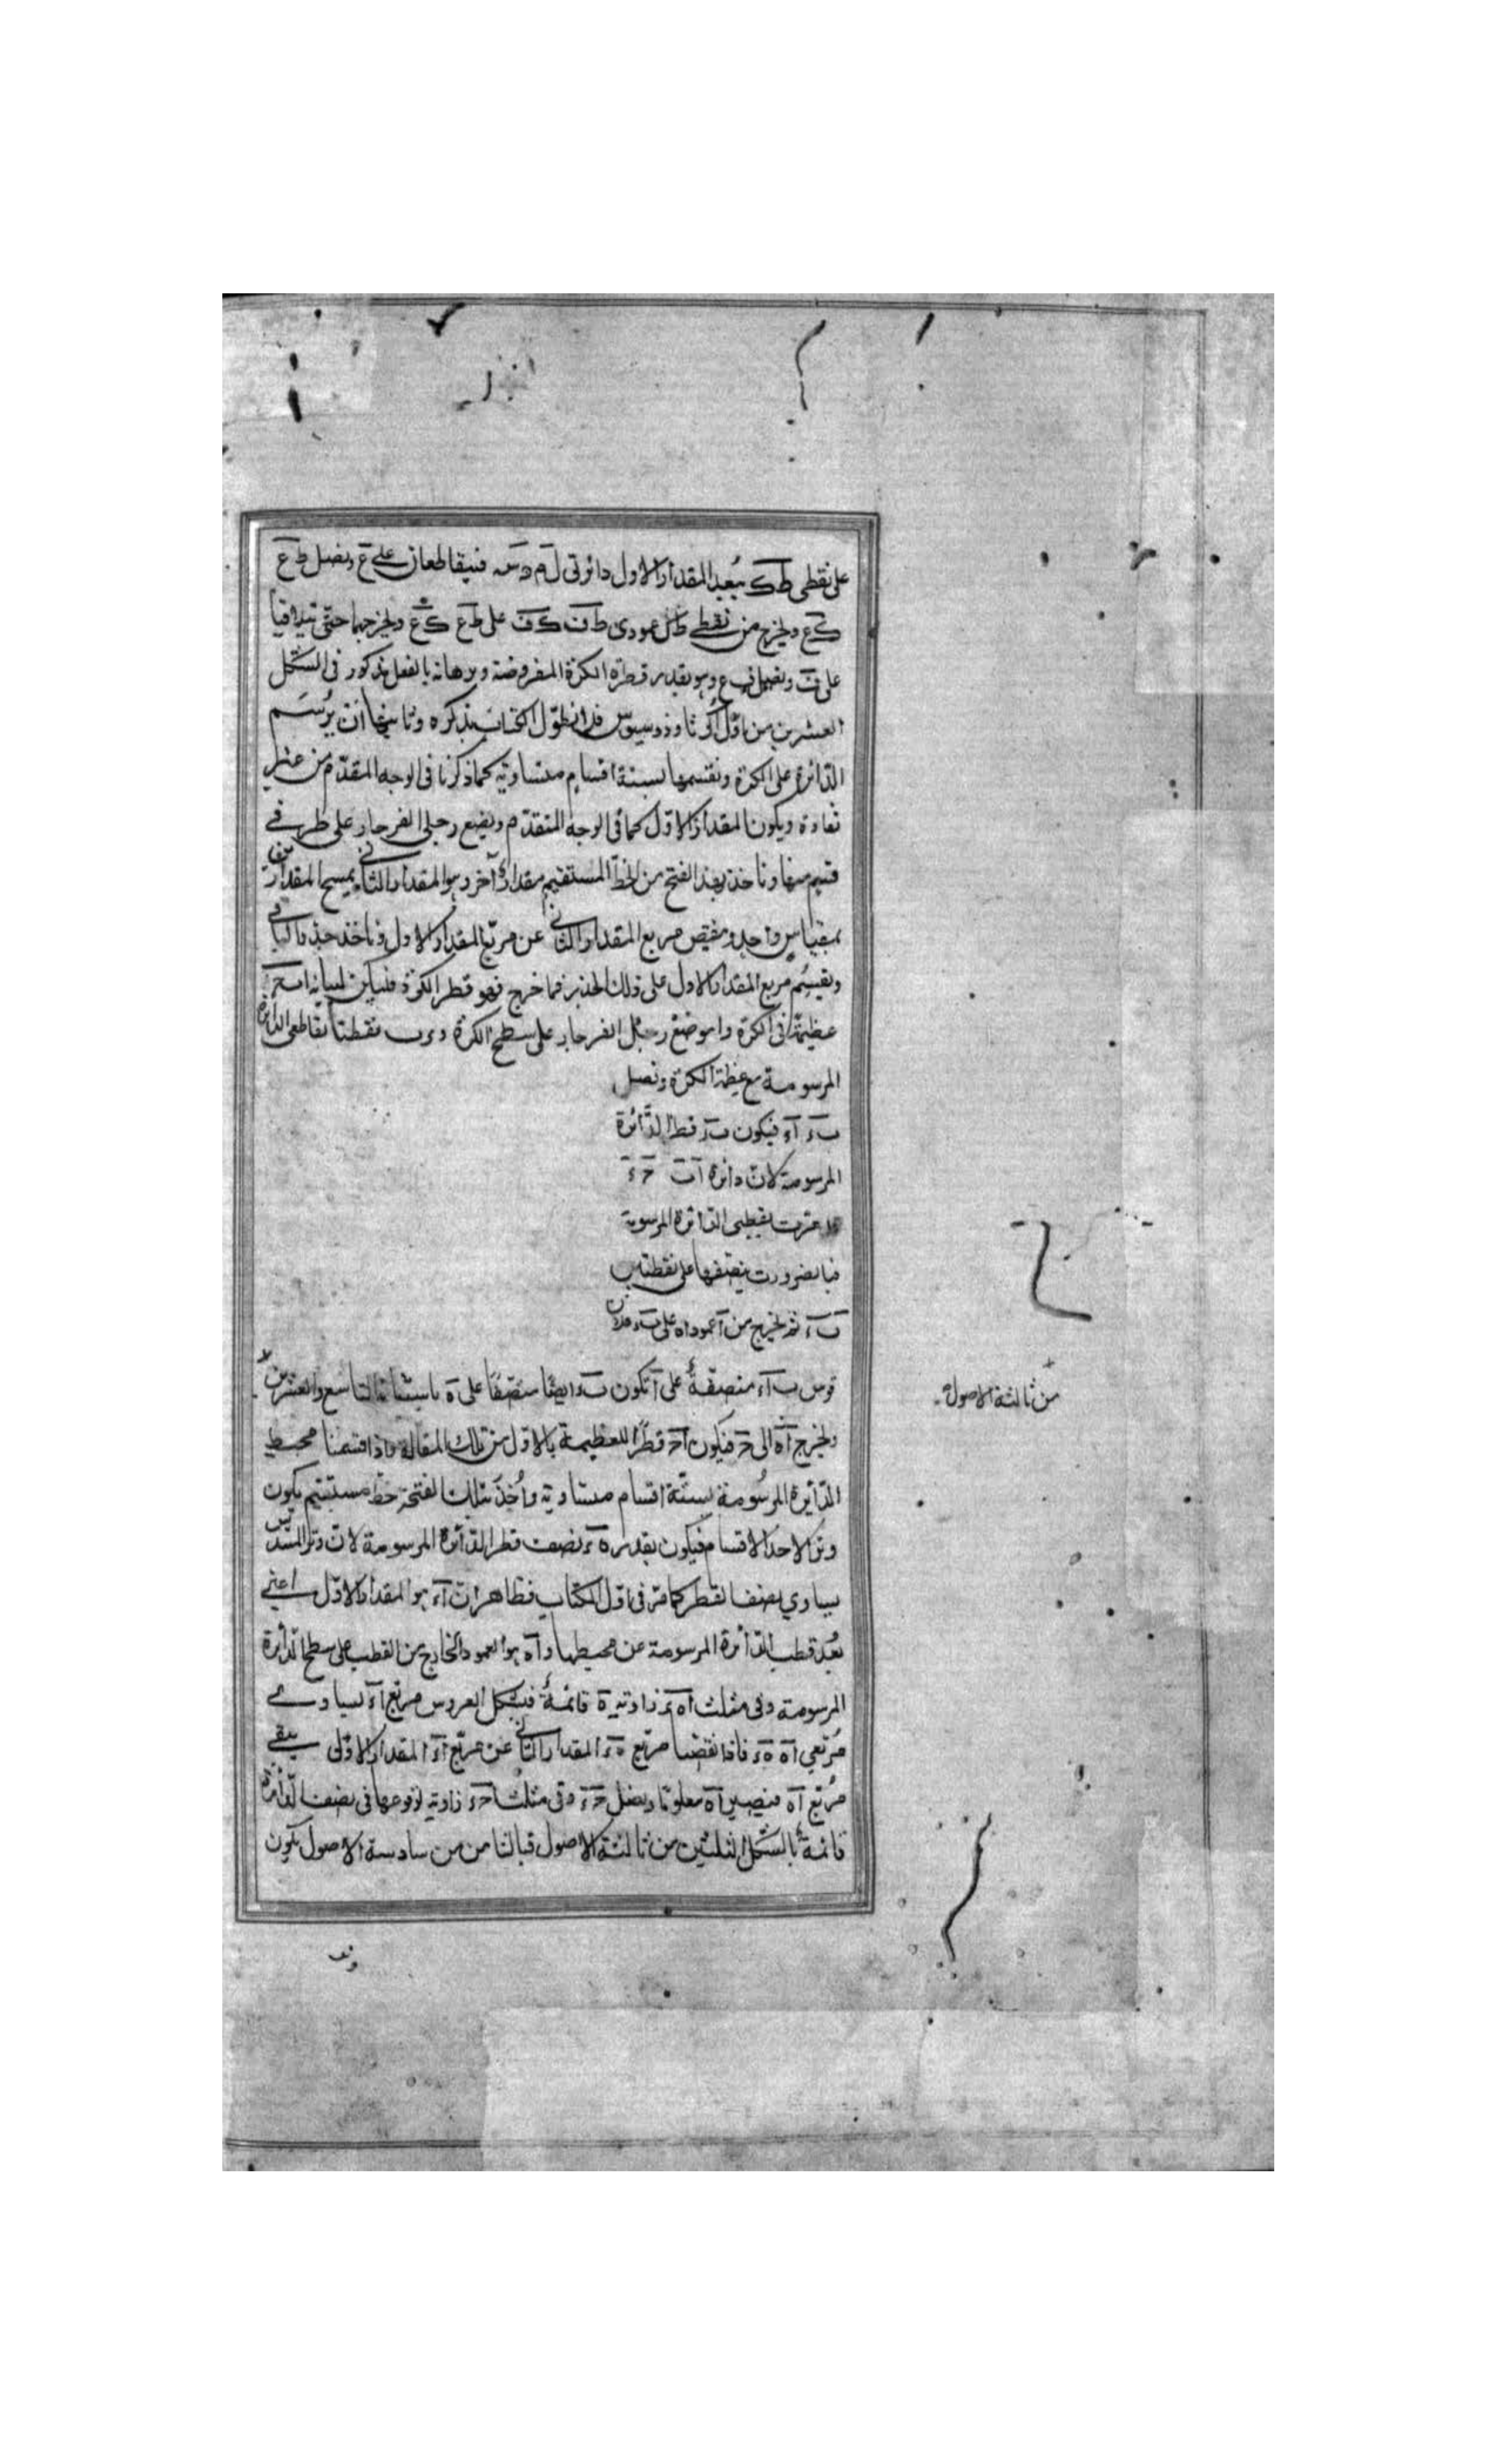 على نقطى ط ك ببعد المقدار الاول دائرتى ل م و س فيتقاطعان على ع ونصل ط ع
ك ع ونخرج من نقطى ط ك عمودى ط ف ك ف على ط ع ك ع ونخرجهما حتى يتلاقيا
على ف ونصل ف ع وهو بقدر قطر الكرة المفروضة وبرهانه بالفعل مذكور فى الشكل
العشرين من اول اكر ثاوذوسيوس فلا نطول الكتاب بذكره وثانيهما ان يرسم
الدائرة على الكرة ونقسمها بستة اقسام متساوية كما ذكرنا فى الوجه المتقدم من غير
تفاوة ويكون المقدار الاول كما فى الوجه المتقدم ونضع رجلى الفرجار على طرفى
قسم منها وناخذ بهذا الفتح من الخط المستقيم مقدارا آخر وهو المقدار الثانى يمسح المقدارين
بمقياس واحد وننقص مربع المقدار الثانى عن مربع المقدار الاول وناخذ جذر الباقى
ونقسم مربع المقدار الاول على ذلك الجذر فما خرج فهو قطر الكرة فليكن لبيانه ا ب ح ء
عظيمة فى الكرة و ا موضع رجل الفرجار على سطح الكرة و ء ب نقطتا تقاطعى الدائرة
المرسومة مع عظيمة الكرة ونصل
ب ء ا ء فيكون ب ء قطر الدائرة
المرسومة لان دائرة ا ب ح ء
قد مرت بقطبى الدائرة المرسومة
فبالضرورت ينصفها على نقطتين
ب ء ثم نخرج من ا عمود ا ه على ب ء فلان
قوس ب ا ء منصفة على ا تكون ب ء ايضا منصفا على ه باستبانة التاسع والعشرين
من ثالثة الاصول
ونخرج ا ه الى ح فيكون ا ح قطرا للعظيمة بالاول من تلك المقالة فاذا قسمنا محيط
الدائرة المرسومة بستة اقسام متساوية واخذ بتلك الفتحة خط مستقيم يكون
وتر الاحد الاقسام فيكون بقدر ه ء نصف قطر الدائرة المرسومة لان وتر المسدس
يساوي نصف القطر كما مر فى اول الكتاب فظاهر ان ا ء هو المقدار الاول اعنى
بعد قطب الدائرة المرسومة عن محيطها و ا ه هو العمود الخارج من القطب على سطح الدائرة
المرسومة وفى مثلث ا ه ء زاوية ه قائمة فبشكل العروس مربع ا ء يساوى
مربعى ا ه ه ء فاذا نقصنا مربع ه ء المقدار الثانى عن مربع ا ء المقدار الاول يبقى
مربع ا ه فيصير ا ه معلوما ونصل ح ء وفى مثلث ا ح ء زاوية ء لوقوعها فى نصف الدائرة
قائمة بالشكل الثلثين من ثالثة الاصول فبالثامن من سادسة الاصول يكون